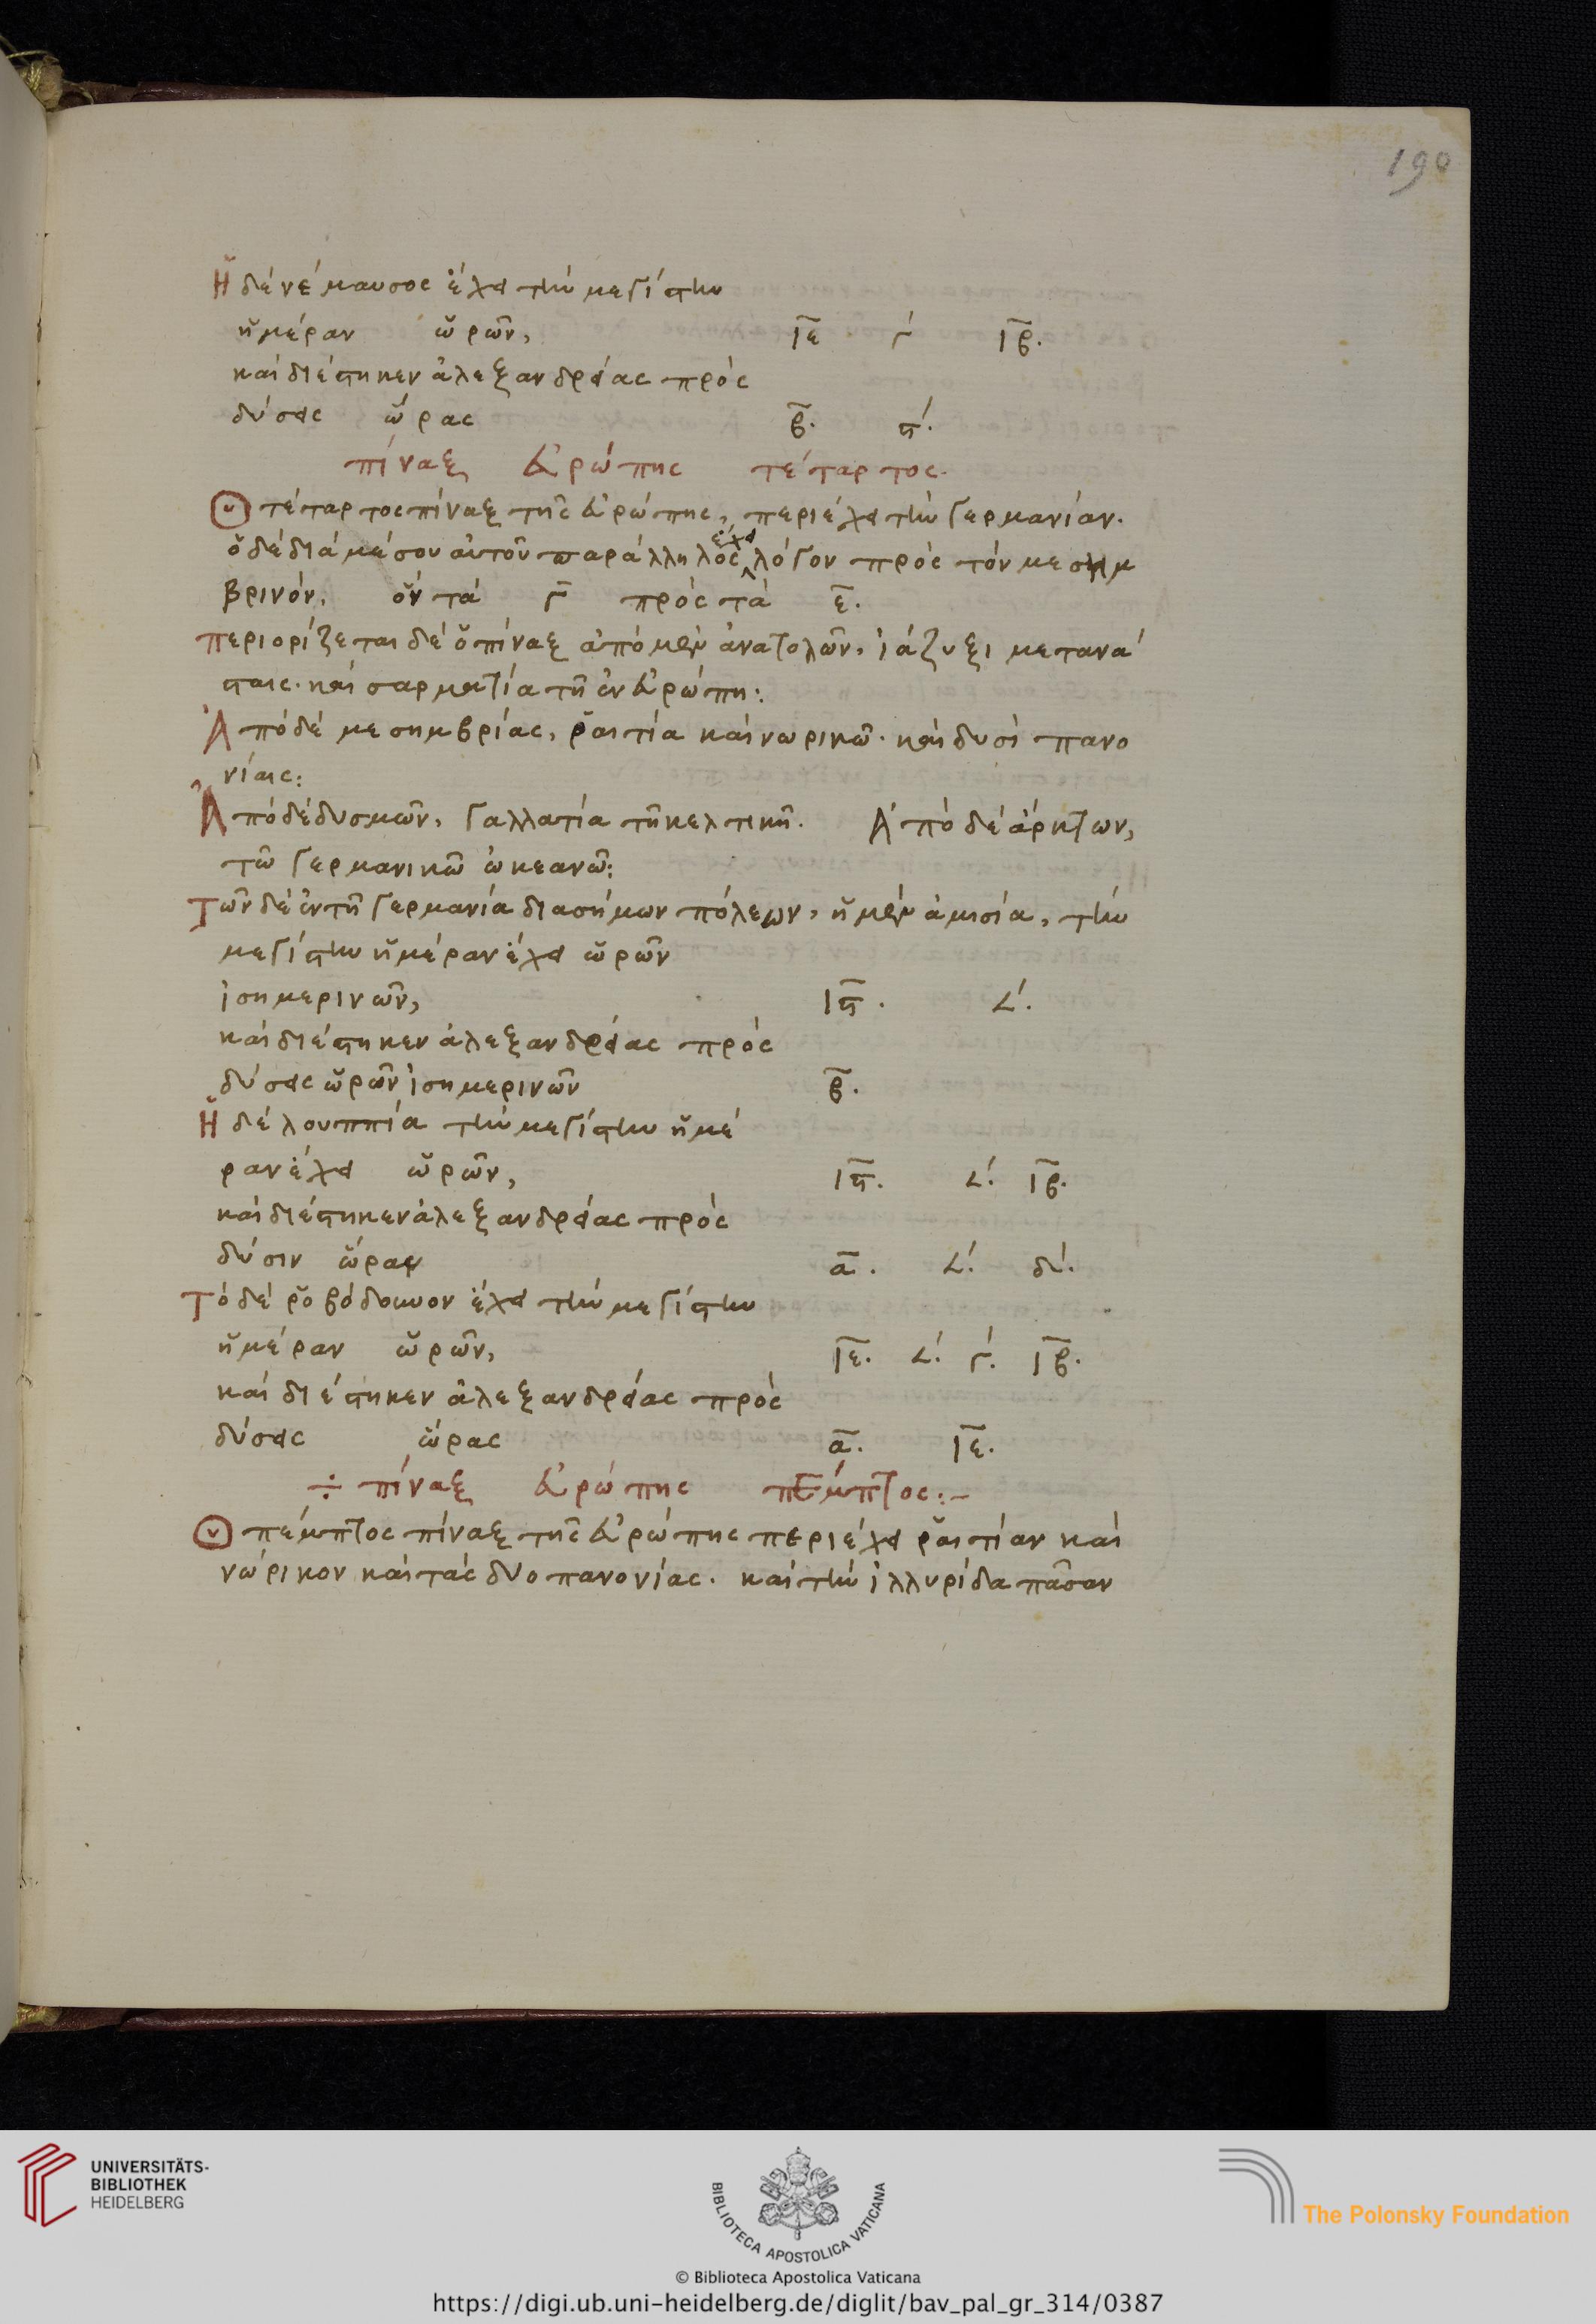 190
Ἡ δὲ νέμαυσος ἔχει τὴν μεγίστην
ἡμέραν ὡρῶν, ιε γ´ ιβ.
καὶ διέστηκεν ἀλεξανδρείας πρὸς
δύσεις ὥρας β. ϛ´.
πίναξ εὐρώπης τέταρτος.
Ὁ τέταρτος πίναξ τῆς εὐρώπης, περιέχει τὴν γερμανίαν.
ὁ δὲ διὰ μέσου αὐτοῦ παράλληλος ἔχει λόγον πρὸς τὸν μεσημ
βρινόν, ὃν τὰ γ πρὸς τὰ ε.
περιορίζεται δὲ ὁ πίναξ ἀπὸ μὲν ἀνατολῶν, ἰάζυξι μετανά
σταις. καὶ σαρματία τῆ ἐν εὐρώπη:
Ἀπὸ δὲ μεσημβρίας, ῥαιτία καὶ νωρικῶ. καὶ δυσὶ πανο
νίαις:
Ἀπὸ δὲ δυσμῶν, γαλλατία τῆ κελτικῆ. Ἀπὸ δὲ ἄρκτων,
τῶ γερμανικῶ ὠκεανῶ:
Τῶν δὲ ἐν τῆ γερμανία διασήμων πόλεων, ἡ μὲν ἀμισία, τὴν
μεγίστην ἡμέραν ἔχει ὡρῶν
ἰσημερινῶν, ιϛ. 𐅵´.
καὶ διέστηκεν ἀλεξανδρείας πρὸς
δύσεις ὡρῶν ἰσημερινῶν β.
Ἡ δὲ λουππία τὴν μεγίστην ἡμέ
ραν ἔχει ὡρῶν, ιϛ. 𐅵´. ιβ.
καὶ διέστηκεν ἀλεξανδρείας πρὸς
δύσιν ὥραν α. 𐅵´. δ´.
Τὸ δὲ ῥοβόδουνον ἔχει τὴν μεγίστην
ἡμέραν ὡρῶν, ιε. 𐅵´. γ´. ιβ.
καὶ διέστηκεν ἀλεξανδρείας πρὸς
δύσεις ὥρας α. ιε.
÷ πίναξ εὐρώπης πέμπτος:–
Ὁ πέμπτος πίναξ τῆς εὐρώπης περιέχει ῥαιτίαν καὶ
νώρικον καὶ τὰς δυο πανονίας. καὶ τὴν ἰλλυρίδα πᾶσαν
UNIVERSITÄTS-
BIBLIOTHEK
HEIDELBERG
BIBLIOTECA APOSTOLICA VATICANA
The Polonsky Foundation
© Biblioteca Apostolica Vaticana
https://digi.ub.uni-heidelberg.de/diglit/bav_pal_gr_314/0387